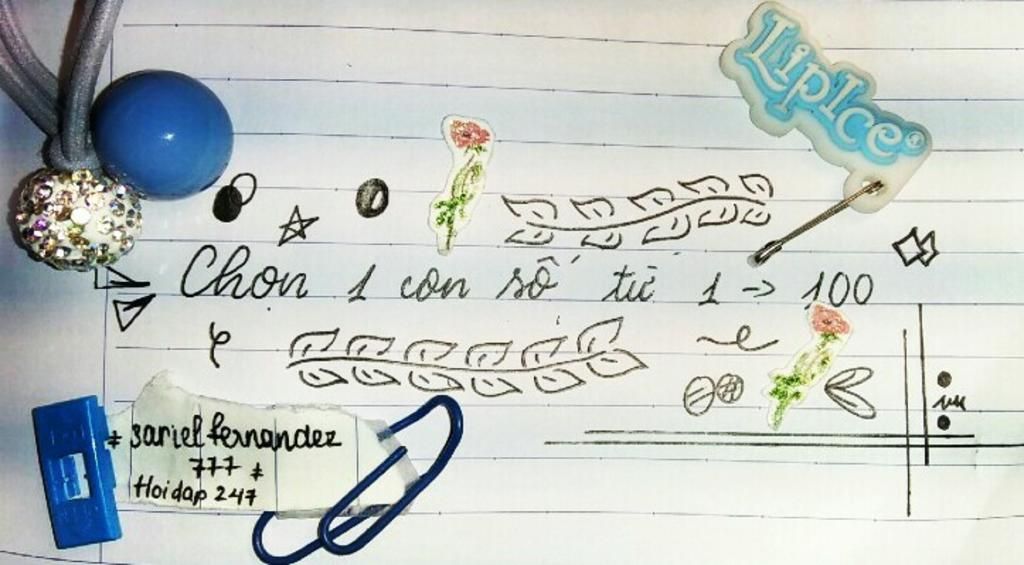 LipIce®
Chọn 1 con số từ 1 -> 100
* sariel fernandez
777 *
Hoidap 247